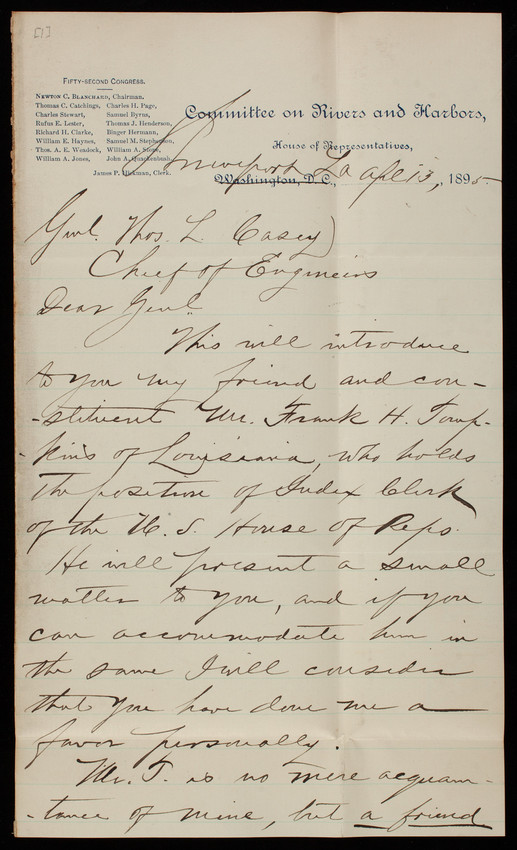 [1]
FIFTY-SECOND CONGRESS.
NEWTON C. BLANCHARD, Chairman.
Thomas C. Catchings, Charles H. Page,
Charles Stewart, Samuel Byrns,
Rufus E. Lester, Thomas J. Henderson,
Richard H. Clarke, Binger Hermann,
William E. Haynes, Samuel M. Stephenson,
Thos. A. E. Weadock, William A. Stone,
William A. Jones, John A. Quackenbush,
James P. Hickman, Clerk.
Committee on Rivers and Harbors,
House of Representatives,
Washington, D. C.,
Shreveport La Apl 13, 1895
Genl. Thos. L. Casey
Chief of Engineers
Dear Genl.
This will introduce
to you my friend and con-
-stituent Mr. Frank H. Tomp-
-kins of Louisiana, who holds
the position of Index Clerk
of the U. S. House of Reps.
He will present a small
matter to you, and if you
can accommodate him in
the same I will consider
that you have done me a
favor personally.
Mr. T. is no mere acquain-
-tance of mine, but a friend